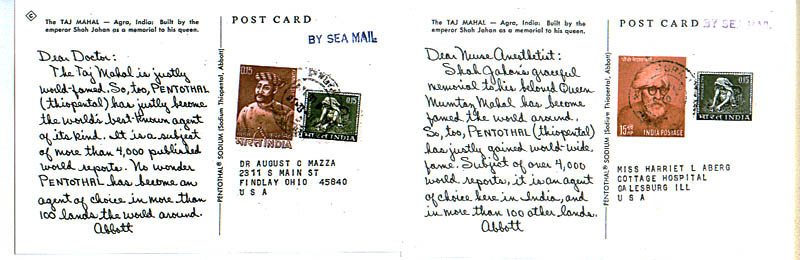 ©
The TAJ MAHAL — Agra, India: Built by the
emperor Shah Jahan as a memorial to his queen.
POST CARD
BY SEA MAIL
Dear Doctor:
The Taj Mahal is justly
world-famed. So, too, PENTOTHAL
(thiopental) has justly become
the world's best-known agent
of its kind. It is a subject
of more than 4,000 published
world reports. No wonder
PENTOTHAL has become an
agent of choice in more than
100 lands the world around.
Abbott
PENTOTHAL® SODIUM (Sodium Thiopental, Abbott)
0.15
भारत INDIA
0.15
भारत INDIA
DR AUGUST C MAZZA
2311 S MAIN ST
FINDLAY OHIO 45840
U S A
The TAJ MAHAL — Agra, India: Built by the
emperor Shah Jahan as a memorial to his queen.
POST CARD
BY SEA MAIL
Dear Nurse Anesthetist:
Shah Jahan's graceful
memorial to his beloved Queen
Mumtaz Mahal has become
famed the world around.
So, too, PENTOTHAL (thiopental)
has justly gained world-wide
fame. Subject of over 4,000
world reports, it is an agent
of choice here in India, and
in more than 100 other lands.
Abbott
PENTOTHAL® SODIUM (Sodium Thiopental, Abbott)
15
INDIA POSTAGE
0.15
भारत INDIA
MISS HARRIET L ABERG
COTTAGE HOSPITAL
GALESBURG ILL
U S A